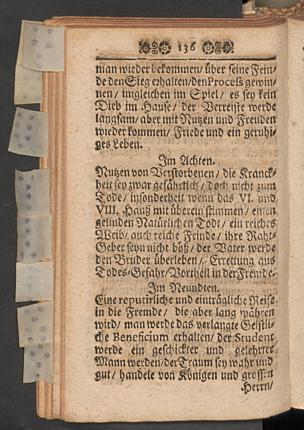 136
man wieder bekommen / über seine Fein-
de den Sieg erhalten / den Proceß gewin-
nen / imgleichen im Spiel / es sey kein
Dieb im Hause / der Verreiste werde
langsam / aber mit Nutzen und Freuden
wieder kommen / Friede und ein geruhi-
ges Leben.
Im Achten.
Nutzen von Verstorbenen / die Kranck-
heit sey zwar gefährlich / doch nicht zum
Tode / insonderheit wenn das VI. und
VIII. Hauß mit überein stimmen / einen
gelinden Natürlichen Todt / ein reiches
Weib / auch reiche Feinde / ihre Raht-
Geber seyn nicht böß / der Vater werde
den Bruder überleben / Errettung aus
Todes-Gefahr / Vortheil in der Fremde.
Im Neundten.
Eine reputirliche und einträgliche Reise
in die Fremde / die aber lang währen
wird / man werde das verlangte Geistli-
che Beneficium erhalten / der Student
werde ein geschickter und gelehrter
Mann werden / der Traum sey wahr und
gut / handele von Königen und grossen
Herrn /